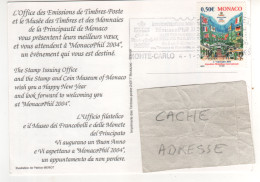 L'Office des Emissions de Timbres-Poste
et le Musée des Timbres et des Monnaies
de la Principauté de Monaco
vous présentent leurs meilleurs vœux
et vous attendent à "MonacoPhil 2004",
un événement qui vous est destiné.
The Stamp Issuing Office
and the Stamp and Coin Museum of Monaco
wish you a Happy New Year
and look forward to welcoming you
at "MonacoPhil 2004".
L'Ufficio filatelico
e il Museo dei Francobolli e delle Monete
del Principato
Vi augurano un Buon Anno
e Vi aspettano a "MonacoPhil 2004",
un appuntamento da non perdere.
0,50€ MONACO
MONTE-CARLO
CACHE
ADRESSE